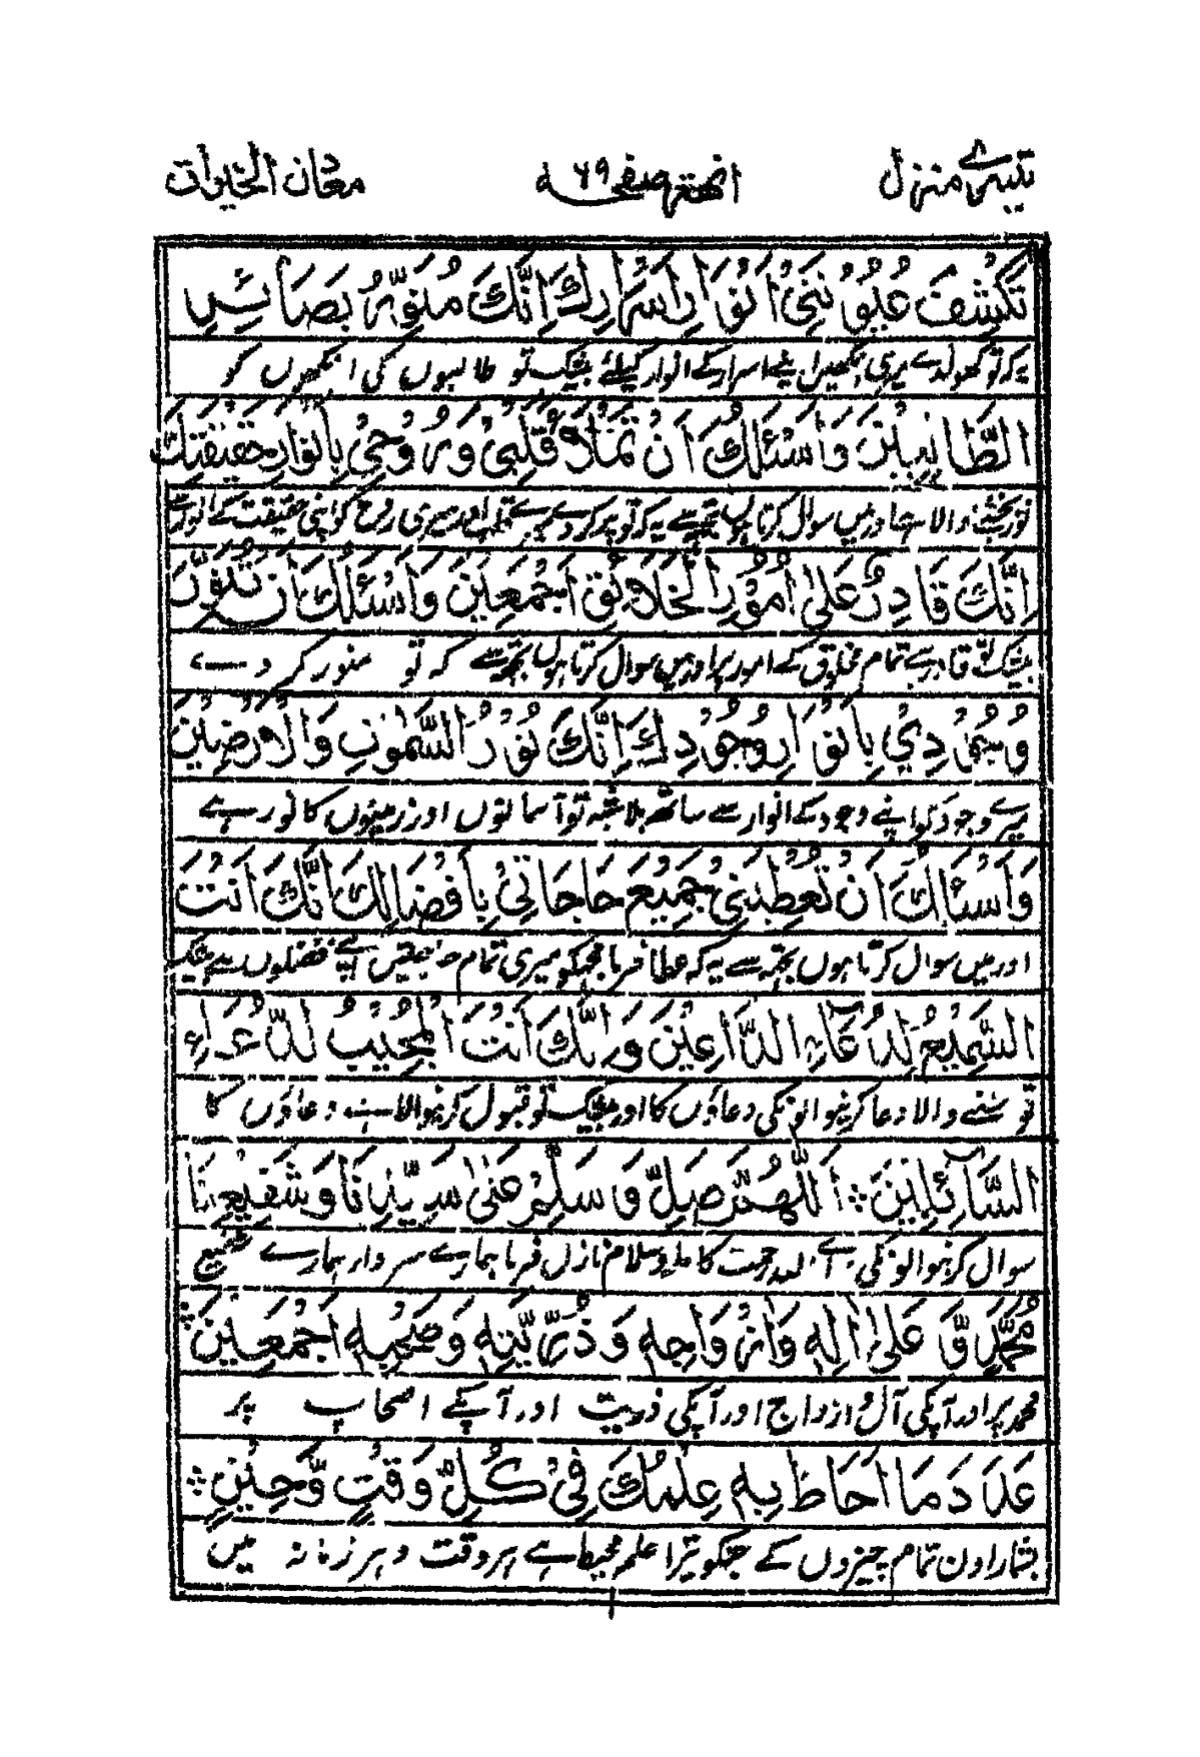 تیسرے منزل انھتر صفحہ ۶۹ معادن الخیرات
تَكْشِفَ عُيُوْنِيْ اَنْوَارَ اَسْرَارِكَ اِنَّكَ مُنَوِّرُ بَصَائِرِ
یہ کہ تو کھولدے میری آنکھیں اپنے اسرار کے انوار کیلئے بیشک تو طالبوں کی انکھوں کو
الطَّالِبِيْنَ وَاَسْئَلُكَ اَنْ تَمْلَأَ قَلْبِيْ وَرُوْحِيْ بِاَنْوَارِ حَقِيْقَتِكَ
نور بخشنے والا ہے اور میں سوال کرتا ہوں تجھ سے یہ کہ تو پر کر دے میرے قلب اور میری روح کو اپنی حقیقت کے انوار سے
اِنَّكَ قَادِرٌ عَلٰى اُمُوْرِ الْخَلَائِقِ اَجْمَعِيْنَ وَاَسْئَلُكَ اَنْ تُنَوِّرَ
بیشک تو قادر ہے تمام مخلوق کے امور پر اور میں سوال کرتا ہوں تجھ سے کہ تو منور کر دے
وُجُوْدِيْ بِاَنْوَارِ وُجُوْدِكَ اِنَّكَ نُوْرُ السَّمٰوٰتِ وَالْاَرْضِيْنَ
میرے وجود کو اپنے وجود کے انوار سے ساتھ بلاشبہ تو آسمانوں اور زمینوں کا نور ہے
وَاَسْئَلُكَ اَنْ تُعْطِيَنِيْ جَمِيْعَ حَاجَاتِيْ بِاَفْضَالِكَ اِنَّكَ اَنْتَ
اور میں سوال کرتا ہوں تجھ سے یہ کہ عطا فرما مجھکو میری تمام حاجتیں اپنے فضلوں سے بیشک
السَّمِيْعُ لِدُعَاءِ الدَّاعِيْنَ وَاِنَّكَ اَنْتَ الْمُجِيْبُ لِدُعَاءِ
تو سننے والا دعا کرنیوالونکی دعاؤں کا اور بیشک تو قبول کرنیوالا ہے دعاؤں کا
السَّائِلِيْنَ ؞ اَللّٰهُمَّ صَلِّ وَسَلِّمْ عَلٰى سَيِّدِنَا وَشَفِيْعِنَا
سوال کرنیوالونکی اے اللہ رحمت کاملہ و سلام نازل فرما ہمارے سردار ہمارے شفیع
مُحَمَّدٍ وَّ عَلٰى اٰلِهٖ وَاَزْوَاجِهٖ وَذُرِّيَّتِهٖ وَصَحْبِهٖ اَجْمَعِيْنَ ؞
محمد پر اور آپکی آل و ازواج اور آپکی ذریت اور آپکے اصحاب پر
عَدَدَ مَا اَحَاطَ بِهٖ عِلْمُكَ فِيْ كُلِّ وَقْتٍ وَّحِيْنٍ ؞
بشمار اون تمام چیزوں کے جنکو تیرا علم محیط ہے ہر وقت و ہر زمانہ میں